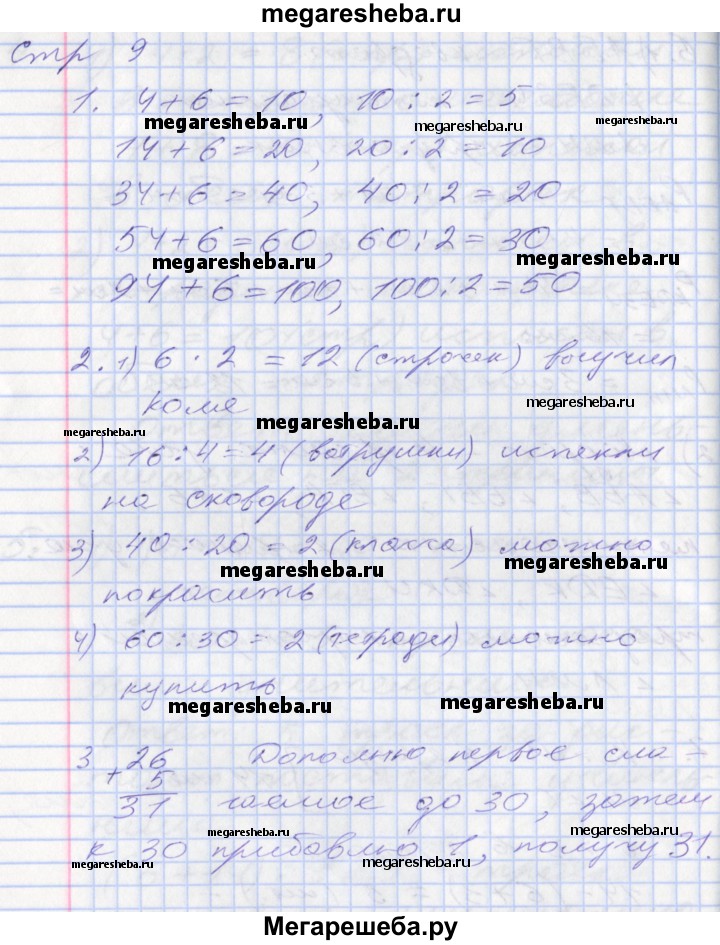 megaresheba.ru
Стр 9
1. 4+6=10, 10:2=5
megaresheba.ru megaresheba.ru megaresheba.ru
14+6=20, 20:2=10
34+6=40, 40:2=20
54+6=60, 60:2=30
megaresheba.ru megaresheba.ru
94+6=100, 100:2=50
2. 1) 6·2=12 (строчек) выучил
megaresheba.ru
Коля
megaresheba.ru
megaresheba.ru
2) 16:4=4 (ватрушки) испекли
на сковороде
3) 40:20=2 (класса) можно
megaresheba.ru megaresheba.ru
покрасить
4) 60:30=2 (тетради) можно
купить
megaresheba.ru megaresheba.ru
3 26 Дополню первое сла-
+ 5
31 гаемое до 30, затем
megaresheba.ru megaresheba.ru
к 30 прибавлю 1, получу 31.
megaresheba.ru megaresheba.ru
Мегарешеба.ру